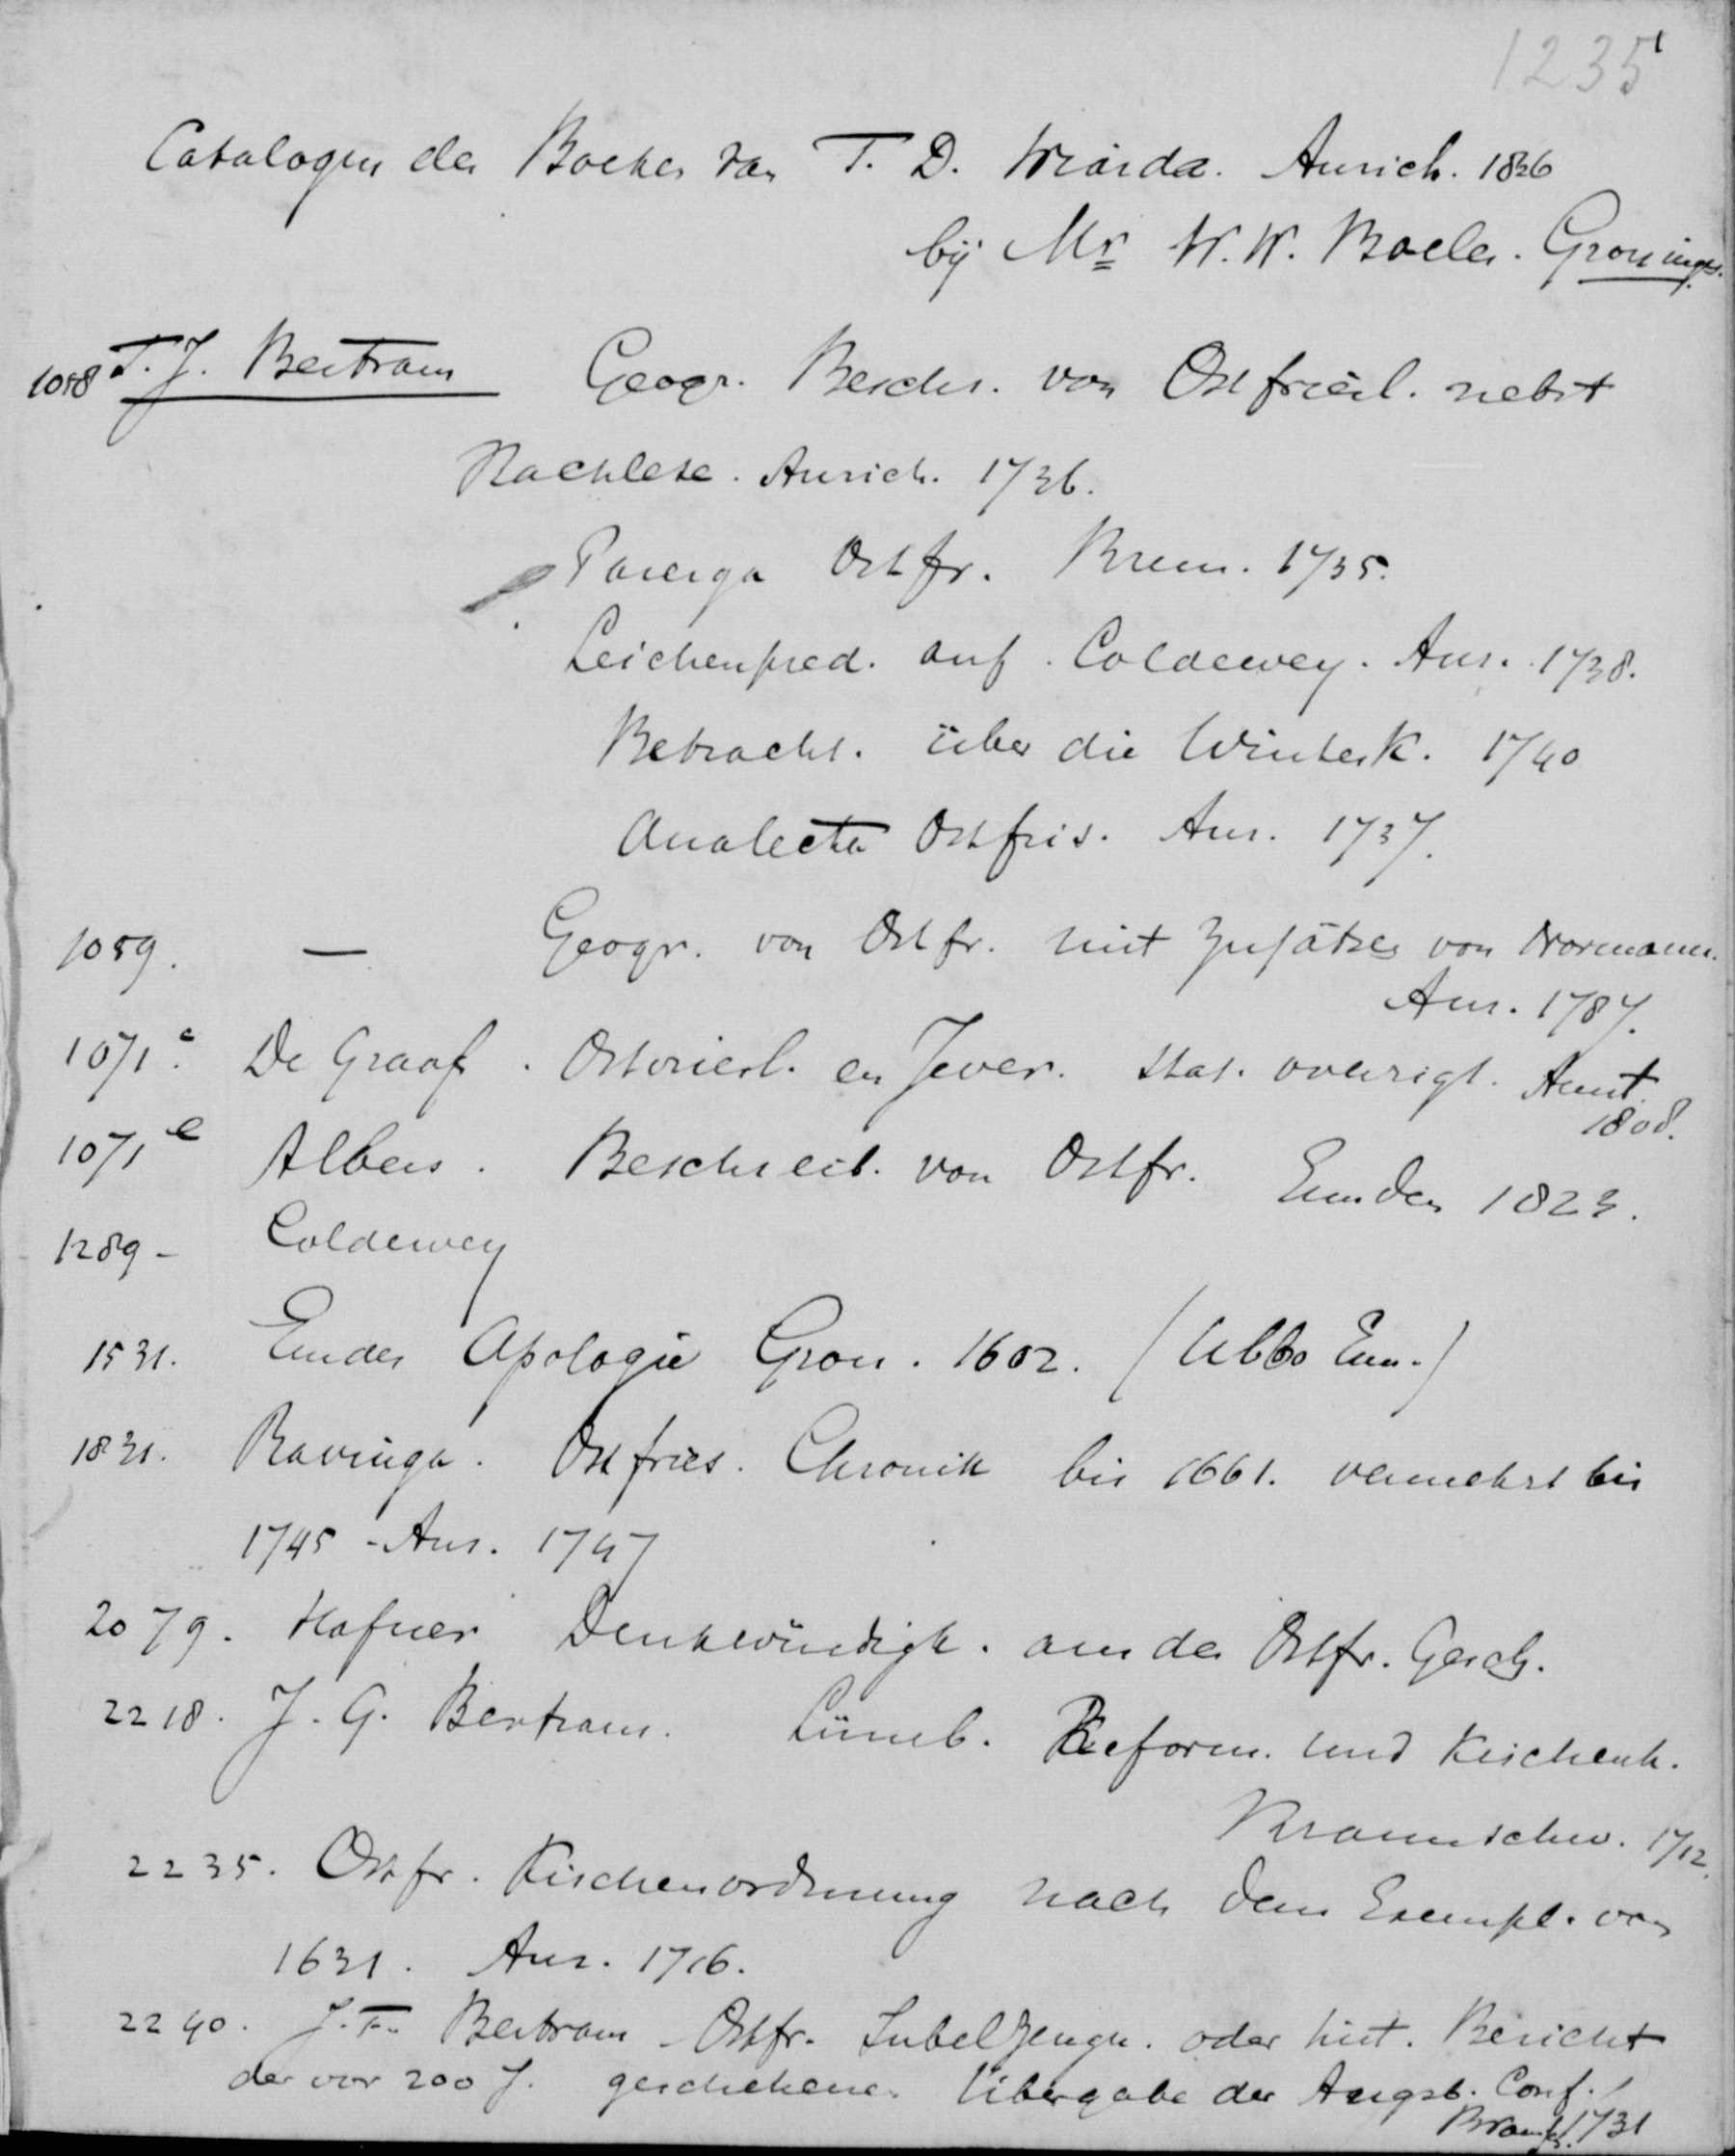 1235
Catalogus der Boeken van T. D. Wiarda. Aurich. 1826
bij Mr W. W. Boeles. Groningen.
1058 T. J. Bertram Geogr. Beschr. von Ostfriesl. nebst
Nachlese. Aurich. 1736.
Parerga Ostfr. Brem. 1735.
Leichenpred. auf Coldewey. Aur. 1738.
Betracht. über die Winterk. 1740
Analecta Ostfris. Aur. 1737.
1059. — Geogr. von Ostfr. mit Zusätzen von Normann.
Aur. 1787.
1071c De Graaf. Ostvriesl. en Jever. stat. overzigt. Amst.
1808.
1071e Albers. Beschreib. von Ostfr. Emden 1823.
1289 - Coldewey
1531. Emder Apologie Gron. 1602. (Ubbo Em.)
1831. Ravinga. Ostfries. Chronik bis 1661. vermehrt bis
1745 - Aur. 1747
2079. Hafner Denkwürdigk. aus der Ostfr. Gesch.
2218. J. G. Bertram. Lüneb. Reform. und Kirchenh.
Braunschw. 1712.
2235. Ostfr. Kirchenordnung nach dem Exempl. von
1631. Aur. 1716.
2240. J. F. Bertram - Ostfr. Jubelzeugn. oder hist. Bericht
der vor 200 J. geschehenen Übergabe der Augsb. Conf.
1731